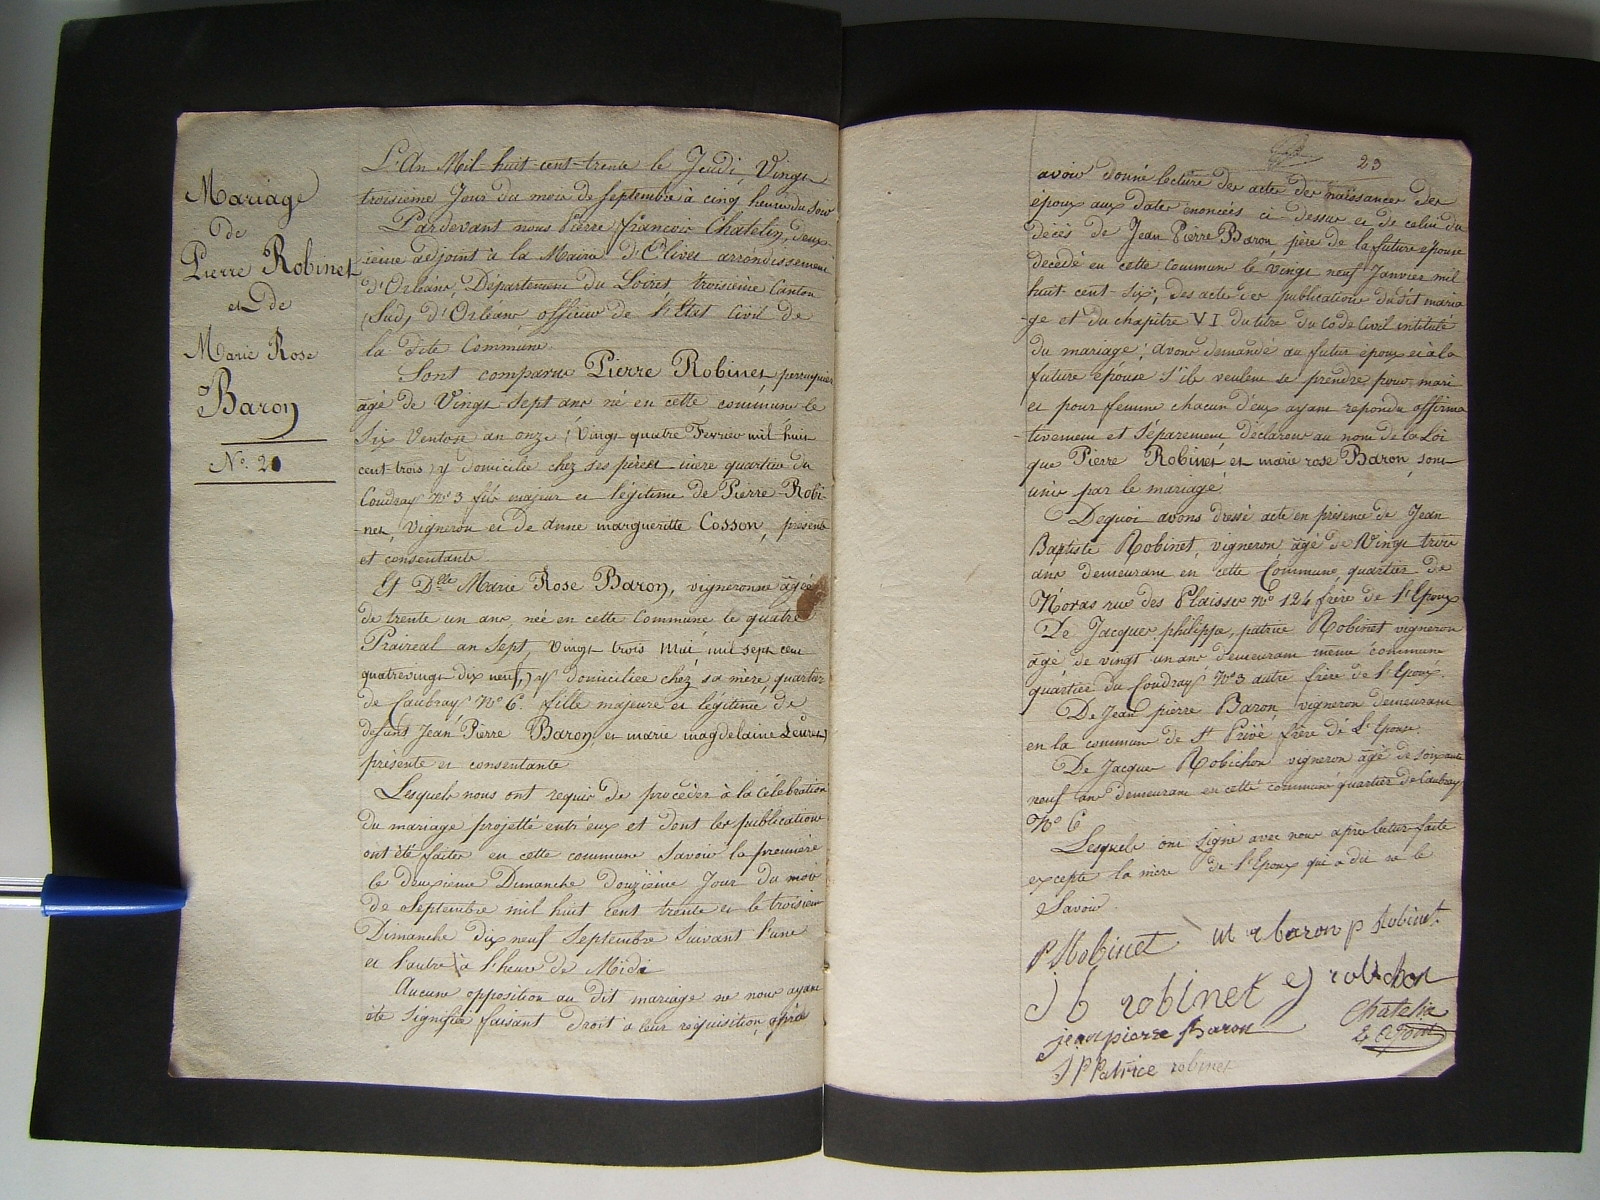 Mariage
de
Pierre Robinet
et de
Marie Rose
Baron
N°. 20
L'An Mil-huit-cent-trente le Jeudi, Vingt
troisieme Jour du mois de Septembre à cinq heures du soir
Pardevant nous Pierre François Chatelin, deux
ieme adjoint à la Mairie d'Olivet arrondissement
d'Orléans, Département du Loiret troisieme Canton
(Sud) d'Orléans officier de l'Etat Civil de
la dite Commune
Sont comparus Pierre Robinet perruquier
âgé de Vingt Sept ans né en cette commune le
Six Ventose an onze (Vingt quatre Fevrier mil huit
cent trois) y domicilié chez ses père et mere quartier du
Coudray N° 3 fils majeur et légitime de Pierre Robi-
-net, Vigneron et de Anne margueritte Cosson, présents
et consentants
Et Dlle Marie Rose Baron, vigneronne âgée
de trente un ans, née en cette Commune le quatre
Praireal an Sept, (Vingt trois Mai mil sept cent
quatrevingt dix neuf,) y domiciliée chez sa mère, quartier
de Caubray N° 6. fille majeure et légitime de
defunt Jean Pierre Baron, et marie magdelaine
présente et consentante
Lesquels nous ont requis de procéder à la Célébration
du mariage projetté entr'eux et dont les publications
ont été faites en cette commune Savoir la première
le deuxieme Dimanche douzième Jour du mois
de Septembre mil huit cent trente et le troisieme
Dimanche dix neuf Septembre Suivant l'une
et l'autre à l'heure de Midi
Aucune opposition au dit mariage ne nous ayant
été Signifié faisant droit à leur réquisition, après
23
avoir donné lecture des actes de naissances des
époux aux dates énoncées ci-dessus et de celui du
décès de Jean Pierre Baron, père de la future épouse
decedé en cette Commune le vingt neuf Janvier mil
huit cent Six, des actes des publications dudit maria
-ge et du chapitre VI du titre du Code Civil intitulé
du mariage; avons demandé au futur époux et à la
future épouse s'ils veulent se prendre pour mari
et pour femme chacun d'eux ayant repondu affirma
-tivement et séparement, déclarons au nom de la Loi
que Pierre Robinet et marie rose Baron, sont
unis par le mariage
Dequoi avons dressé acte en présence de Jean
Baptiste Robinet, vigneron âgé de Vingt trois
ans demeurant en cette Commune, quartier de
Noras rue des Plaisses N° 124 frère de l'Epoux
De Jacques philippe, patrice Robinet vigneron
âgé de vingt un ans demeurant même commune
quartier du Coudray N° 3 autre frère de l'Epoux.
De Jean pierre Baron vigneron demeurant
en la commune de St Privé frère de l'Epouse.
De Jacques Robichon vigneron âgé de soixante
neuf ans demeurant en cette commune quartier de Caubray
N° 6
Lesquels ont signé avec nous après lecture faite
excepté la mère de l'Epoux qui a dit ne le
Savoir
P Robinet m r baron p Robinet
j b robinet j robichon
jean pierre Baron Chatelin
J P Patrice robinet